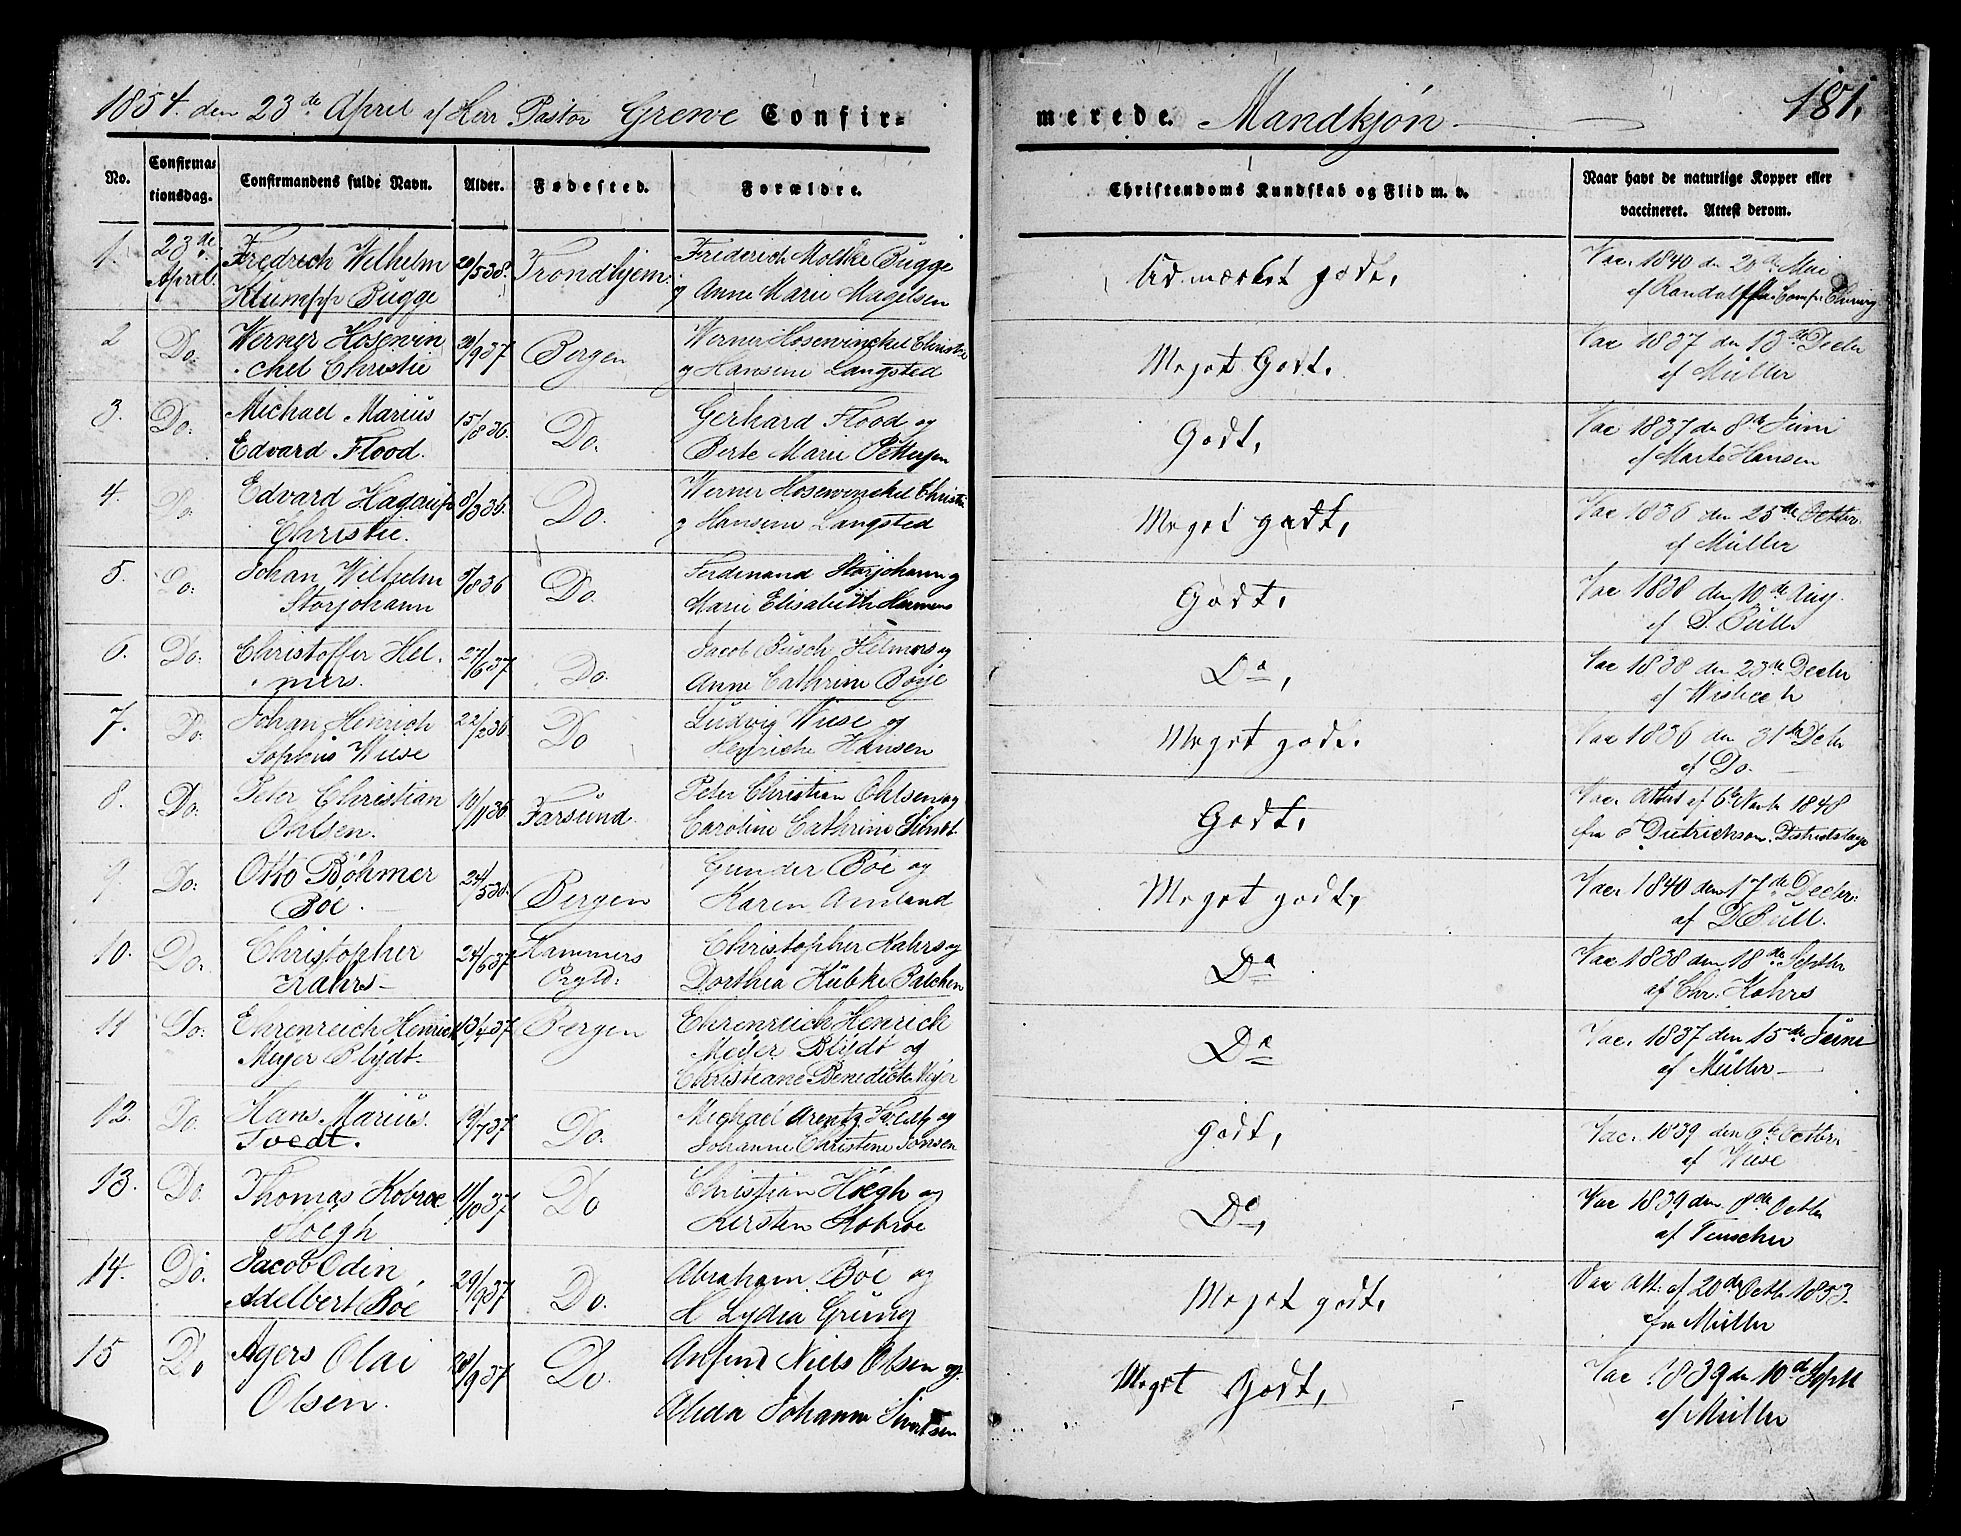 1854. den 23de April af Herr Pastor Grewe Confir=
merede. Mandkjøn
181.
No.
Confirma=
tionsdag.
Confirmandens fulde Navn.
Alder.
Fødested.
Forældre.
Christendoms Kundskab og Flid m. v.
Naar havt de naturlige Kopper eller
vaccineret. Attest derom.
1. 23de Fredrich Wilhelm 29/5 38. Trondhjem. Friderich Moltke Bugge Udmærket godt, Vac. 1840 den 20de Mai
April. Klumpp Bugge og Anne Marie Magelsen af
2 Do. Werner Hosewin 20/9 37 Bergen Werner Hosewinckel Christie Meget Godt. Vac 1837 den 13de Decbr
ckel Christie og Hansine Langsted af Müller
3. Do. Michael Marius 15/8 36. Do. Gerhard Flood og Godt, Vac 1837 den 8de Juni
Edvard Flood. Berte Marie Pettersen af Marte Hansen
4. Do. Edvard Hagerup 8/3 36. Do. Werner Hosewinckel Christie Meget godt, Vac 1836 den 25de Octbr.
Christie. og Hansine Langsted af Müller
5. Do. Johan Wilhelm 5/8 36 Do. Ferdinand Storjohann og Godt, Vac 1838 den 10de Aug.
Storjohann Marie Elisabeth af D. Bull
6. Do. Christoffer Hel- 27/6 37 Do. Jacob Busch Helmers og Do, Vac 1838 den 23de Decbr
mers. Anne Cathrine Böije af
7. Do. Johan Henrich 22/2 36 Do Ludvig Wiese og Meget godt. Vac 1836 den 31te Decbr
Sophus Wiese Henriche Hansen af Do.
8. Do. Peter Christian 10/11 36 Farsund Peter Christian Ohlsen og Godt, Vac. Attest af 6te Novbr 1848
Ohlsen. Caroline Cathrine fra Dietrichson. Districtslæge
9. Do. Otto Böhmer 24/5 38. Bergen Gunder Böe og Meget godt, Vac. 1840 den 17de Decbr.
Böe. Karen Amland af D Bull.
10. Do. Christopher 24/6 37 Hammers Christopher Kahrs og Do Vac 1838 den 18de Septbr
Kahrs Prgld. Dorthea Lübke Balchen af Chr. Kahrs
11 Do. Ehrenreich Henrich 13/4 37 Bergen Ehrenreich Henrick Do Vac. 1837 den 15de Juni
Meyer Blydt. Meyer Blydt og af Müller
Christiane Benedicte Meyer
12. Do. Hans Marius 19/7 37 Do. Michael Arentz Tvedt og godt, Vac. 1839 den 6te Octbr
Tvedt. Johanne Christine Jansen af Wiese
13. Do. Thomas Kobroe 11/10 37 Do Christian Höegh og Do, Vac 1839 den 8de Octbr
Höegh Kirsten Kobroe af Teuscher
14. Do. Jacob Odin 29/9 37 Do. Abraham Böe og Meget godt. Vac Att. af 20de Octb. 1853.
Adelbert Böe H Lydia Grung fra Müller
15 Do Agers Olai 28/9 37 Do. Anfind Niels Olsen og Meget Godt, Vac 1839 den 10de Septb
Olsen. Alida Johanne Sivertsen af Müller